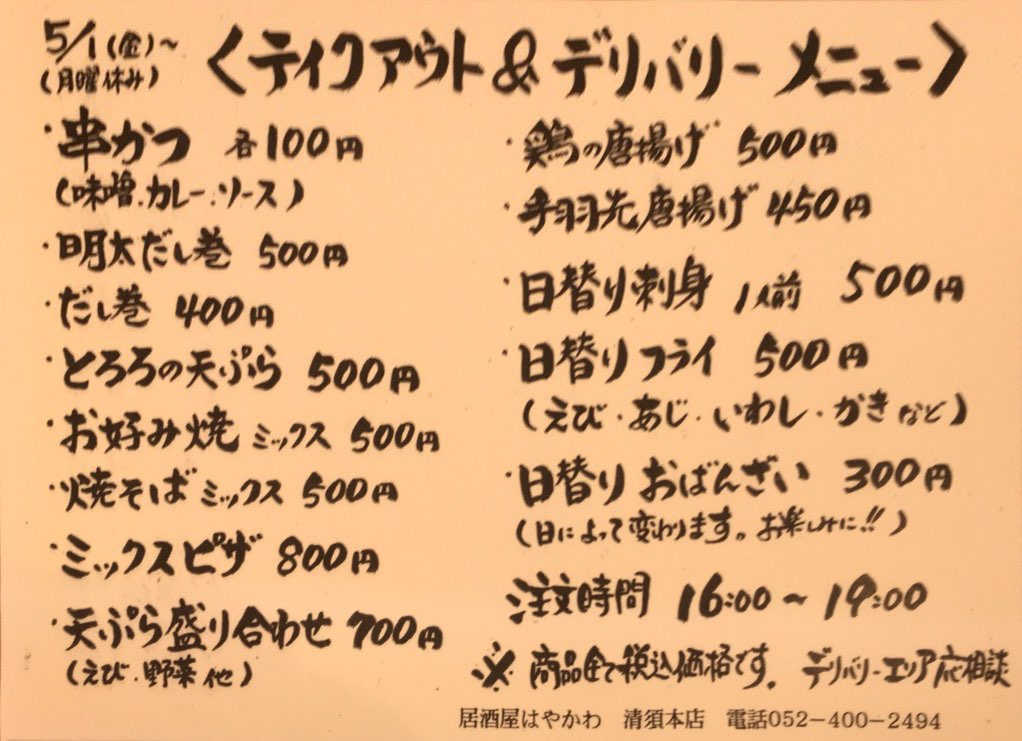 5/1(金)~
(月曜休み)
〈テイクアウト&デリバリーメニュー〉
・串かつ 各100円
(味噌.カレー.ソース)
・明太だし巻 500円
・だし巻 400円
・とろろの天ぷら 500円
・お好み焼 ミックス 500円
・焼そば ミックス 500円
・ミックスピザ 800円
・天ぷら盛り合わせ 700円
(えび.野菜 他)
・鶏の唐揚げ 500円
・手羽先唐揚げ 450円
・日替り刺身 1人前 500円
・日替りフライ 500円
(えび・あじ・いわし・かきなど)
・日替りおばんざい 300円
(日によって変わります。お楽しみに!!)
注文時間 16:00~19:00
※商品全て税込価格です。デリバリーエリア応相談
居酒屋はやかわ 清須本店 電話052-400-2494